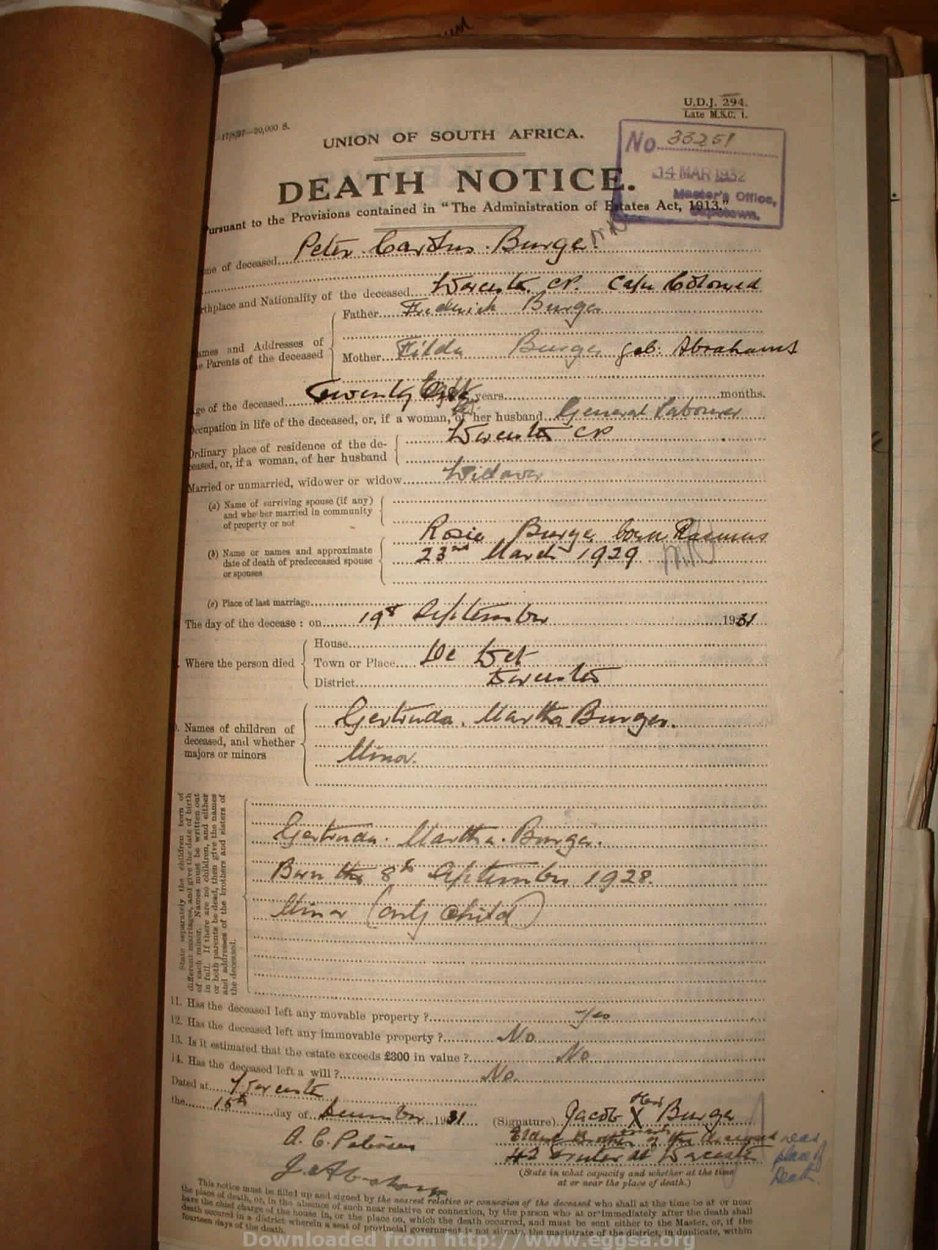 U.D.J. 294.
Late M.S.C. 1.
—17/8/27—20,000 S.
UNION OF SOUTH AFRICA.
No 33251
14 MAR 1932
Master's Office,
Capetown.
DEATH NOTICE.
Pursuant to the Provisions contained in "The Administration of Estates Act, 1913."
me of deceased Peter Burger
rthplace and Nationality of the deceased Worcester CP. Cape Coloured
ames and Addresses of
e Parents of the deceased
Father Frederick Burger
Mother Hilda Burger geb. Abrahams
ge of the deceased Twenty Eight years months.
Occupation in life of the deceased, or, if a woman, of her husband General Labourer
Ordinary place of residence of the de-
ceased, or, if a woman, of her husband
Worcester CP
Married or unmarried, widower or widow Widower
(a) Name of surviving spouse (if any)
and whether married in community
of property or not
(b) Name or names and approximate
date of death of predeceased spouse
or spouses
Rosie Burger born Rasmus
23rd March 1929
(c) Place of last marriage
The day of the decease : on 19th September 1931
Where the person died
House
Town or Place De Wet
District Worcester
Names of children of
deceased, and whether
majors or minors
Gertruda Martha Burger.
Minor.
State separately the children born of
different marriages, and give the date of birth
of each minor. Names must be written out
in full. If there are no children, and either
or both parents be dead, then give the names
and addresses of the brothers and sisters of
the deceased.
Gertruda Martha Burger.
Born the 8th September 1928.
Minor (only child)
11. Has the deceased left any movable property ? Yes
12. Has the deceased left any immovable property ? No
13. Is it estimated that the estate exceeds £300 in value ? No
14. Has the deceased left a will ? No
Dated at Worcester
the 15th day of December 1931
(Signature) Jacob His X Burger
Eldest Brother of the deceased
at Worcester
near place of Death
A. C. Petersen
J. Abrahams
(State in what capacity and whether at the time
at or near the place of death.)
This notice must be filled up and signed by the nearest relative or connexion of the deceased who shall at the time be at or near
the place of death, or, in the absence of such near relative or connexion, by the person who at or immediately after the death shall
have the chief charge of the house in, or the place on, which the death occurred, and must be sent either to the Master, or, if the
death occured in a district wherein a seat of provincial government is not situate, the magistrate of the district, in duplicate, within
fourteen days of the death.
Downloaded from http://www.eggsa.org